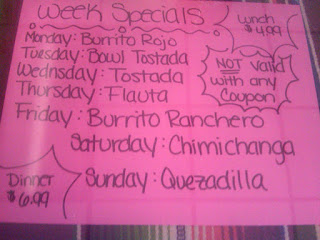 Week Specials
Lunch
$4.99
Monday: Burrito Rojo
Tuesday: Bowl Tostada
Wednsday: Tostada
Thursday: Flauta
NOT valid
with any
Coupon
Friday: Burrito Ranchero
Saturday: Chimichanga
Sunday: Quezadilla
Dinner
$6.99